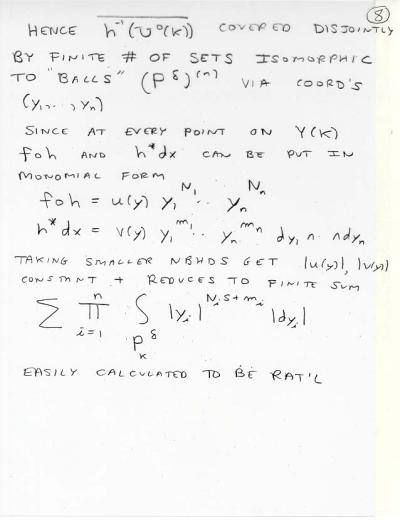 ⑧
HENCE h⁻¹(U⁰(K)) COVERED DISJOINTLY
BY FINITE # OF SETS ISOMORPHIC
TO "BALLS" (P^δ)^(n) VIA COORD'S
(y₁,.., yₙ)
SINCE AT EVERY POINT ON Y(K)
foh AND h*dx CAN BE PUT IN
MONOMIAL FORM
foh = u(y) y₁^N₁ .. yₙ^Nₙ
h*dx = v(y) y₁^m₁ .. yₙ^mₙ dy₁ ∧ .. ∧dyₙ
TAKING SMALLER NBHDS GET |u(y)|, |v(y)|
CONSTANT + REDUCES TO FINITE SUM
∑ ∏_{i=1}^{n} ∫_{P_K^δ} |yᵢ|^{Nᵢs+mᵢ} |dyᵢ|
EASILY CALCULATED TO BE RAT'L